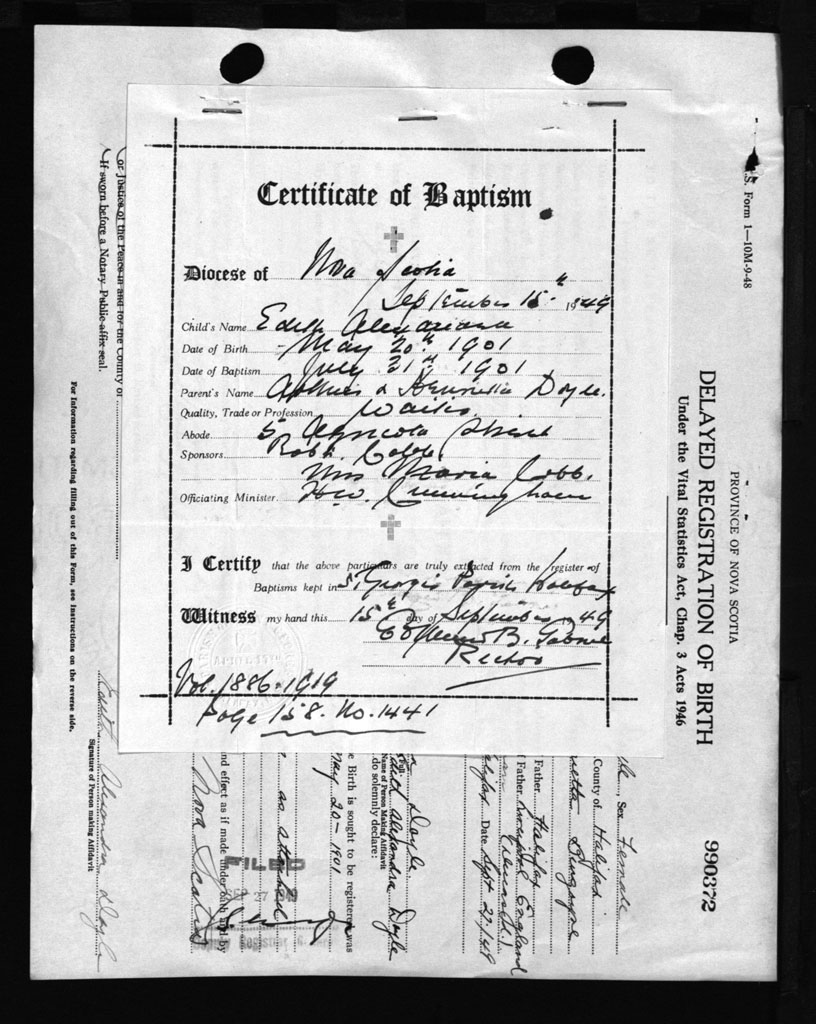 Certificate of Baptism
Diocese of Nova Scotia
September 15th 1949
Child's Name Edith Alexandra
Date of Birth May 20th 1901
Date of Baptism July 21st 1901
Parent's Name & Henrietta Doyle.
Quality, Trade or Profession
Abode 5 Agricola Street
Sponsors Robt. Cobb.
Mrs Maria Cobb.
Officiating Minister. H.W. Cunningham
I Certify that the above particulars are truly extracted from the register of
Baptisms kept in St. George's Parish Halifax
Witness my hand this 15th day of September 1949
B.
Rector
Vol. 1886-1919
Page 158. No. 1441
S. Form 1—10M-9-48
PROVINCE OF NOVA SCOTIA
DELAYED REGISTRATION OF BIRTH
Under the Vital Statistics Act, Chap. 3 Acts 1946
990372
Sex Female
County of Halifax
Father Halifax
f Father England
Halifax Date Sept 27/49
Doyle
Edith Alexandra Doyle
Name of Person Making Affidavit
do solemnly declare:
e Birth is sought to be registered was
May 20-1901
as attended
nd effect as if made under oath and by
Nova Scotia
FILED
27
or Justice of the Peace in and for the County of
If sworn before a Notary Public affix seal.
Edith Alexandra Doyle
Signature of Person making Affidavit
For Information regarding filling out of this Form, see Instructions on the reverse side.